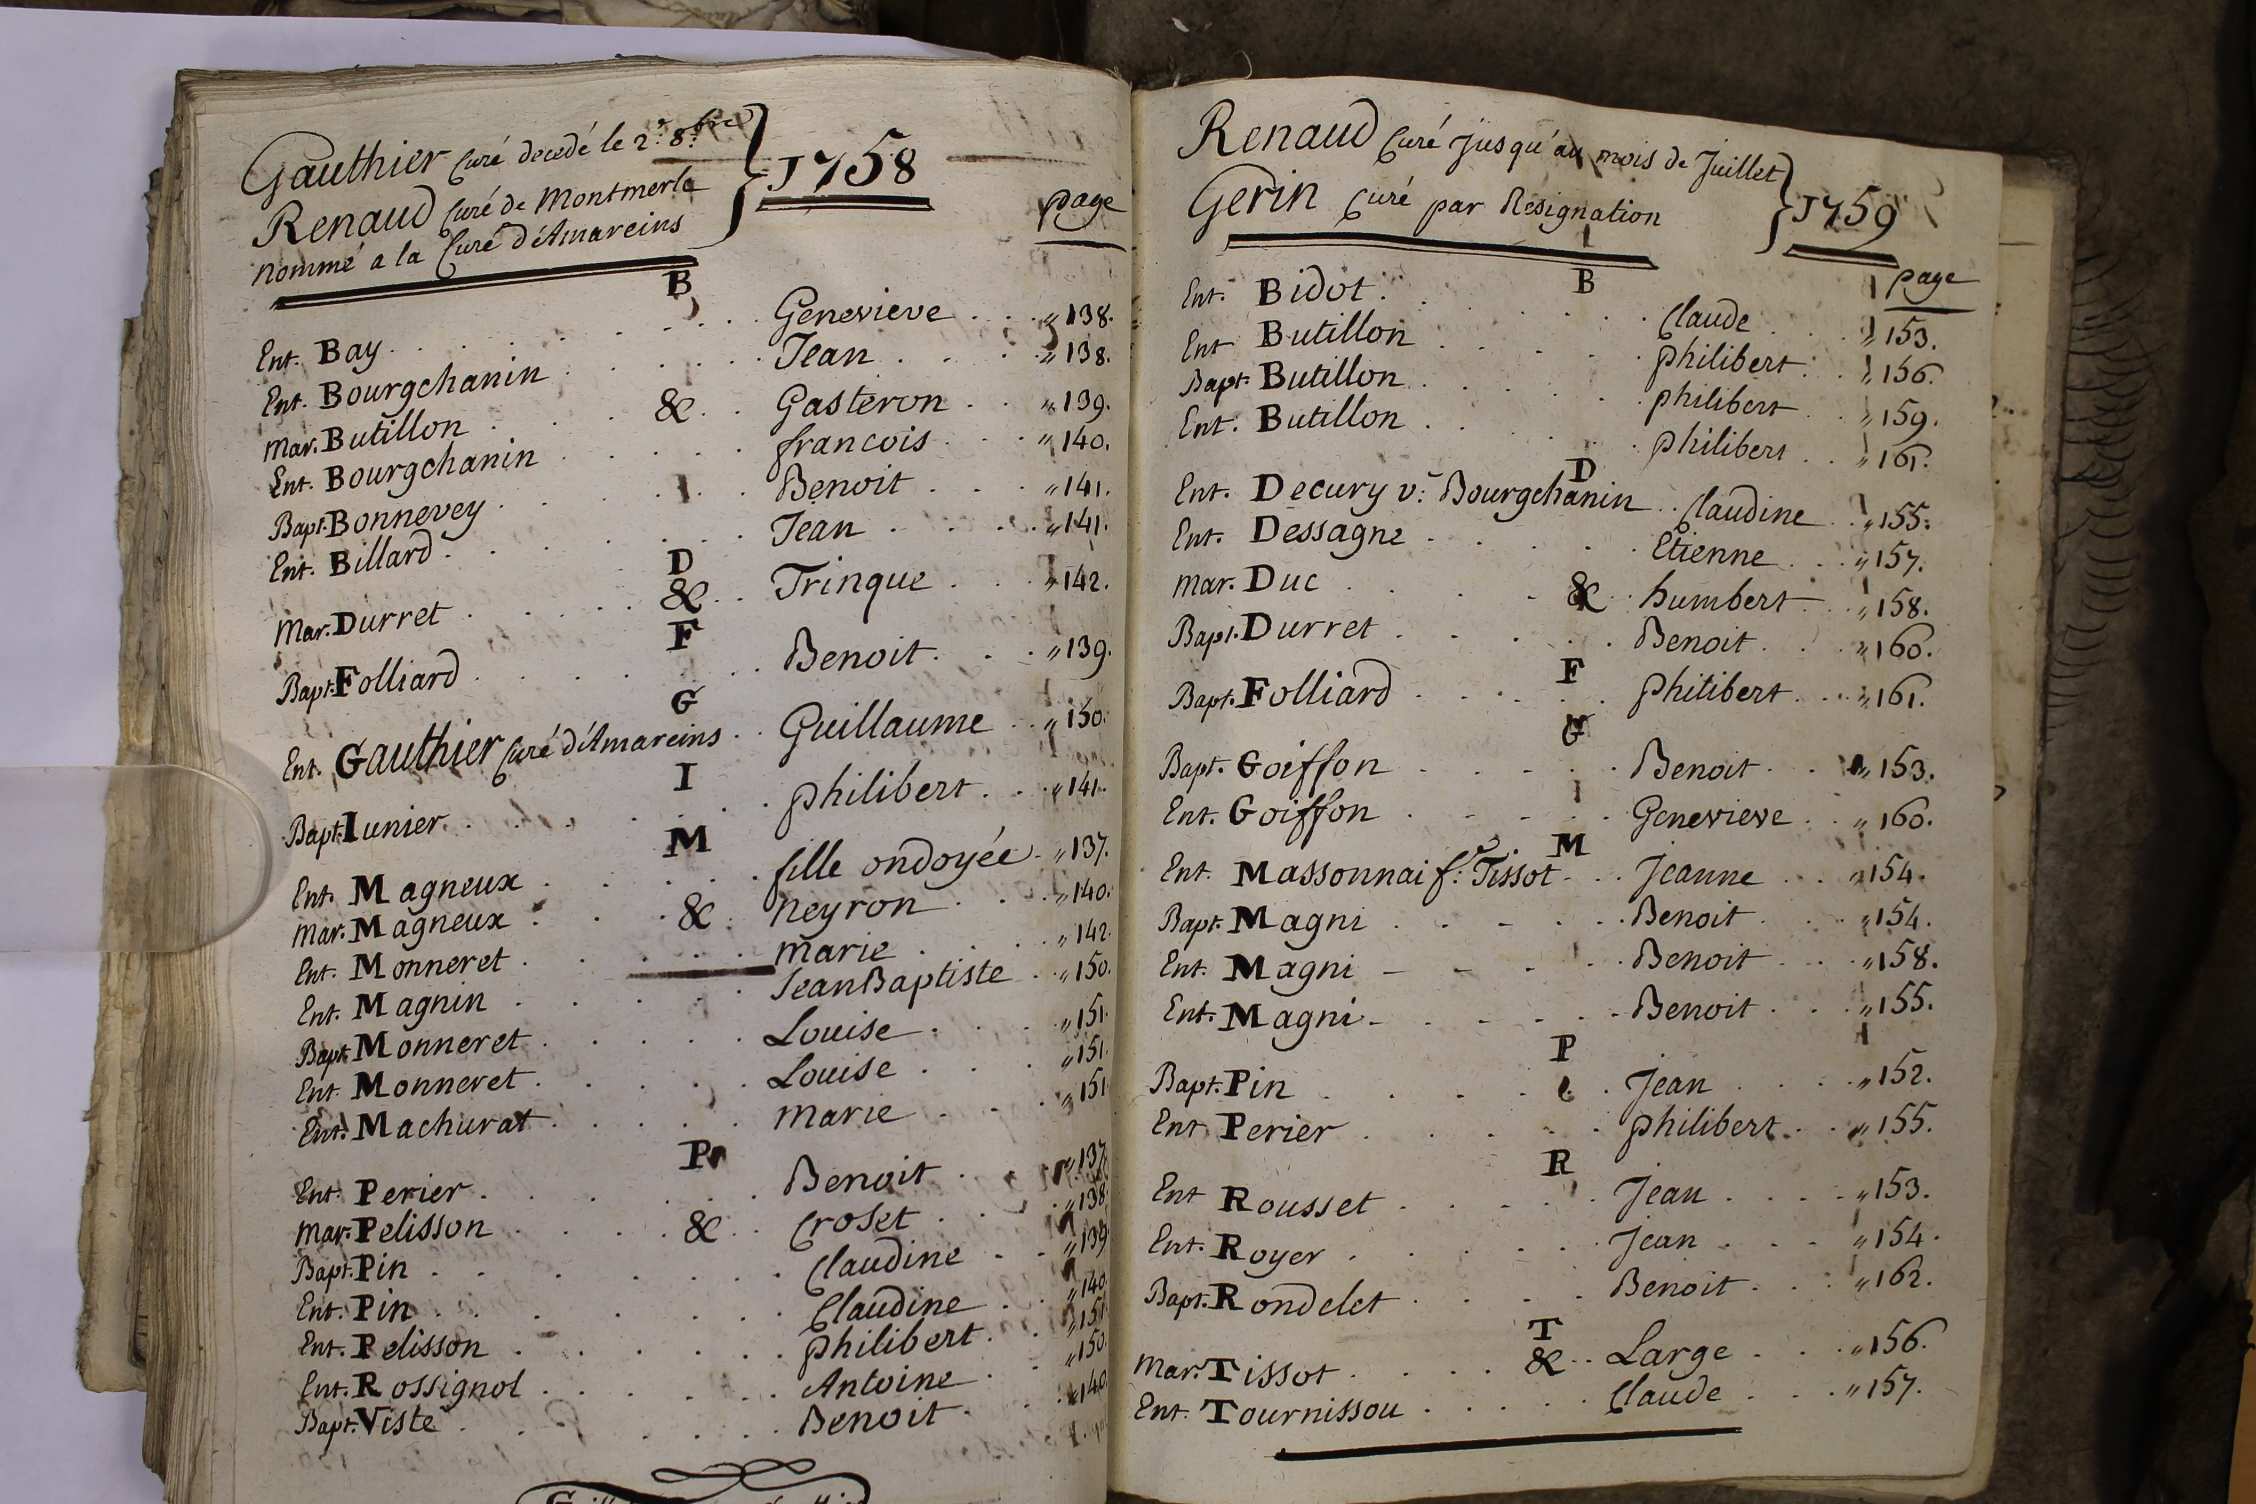 Gauthier Curé decedé le 2.e 8.bre
Renaud Curé de Montmerle
nommé a la Curé d'Amareins
1758
page
B
Ent. Bay Genevieve 138.
Ent. Bourgchanin Jean 138.
Mar. Butillon & Gasteron 139.
Ent. Bourgchanin francois 140.
Bapt. Bonnevey Benoit 141.
Ent. Billard Jean 141.
D
Mar. Durret & Trinque 142.
F
Bapt. Folliard Benoit 139.
G
Ent. Gauthier Curé d'Amareins Guillaume 150.
I
Bapt. Iunier philibert 141.
M
Ent. Magneux fille ondoyée 137.
Mar. Magneux & neyron 140.
Ent. Monneret marie 142.
Ent. Magnin Jean Baptiste 150.
Bapt. Monneret Louise 151.
Ent. Monneret Louise 151.
Ent. Machurat marie 151.
P
Ent. Perier Benoit 137.
Mar. Pelisson & Croset 138.
Bapt. Pin Claudine 139.
Ent. Pin Claudine 140.
Ent. Pelisson philibert 151.
Ent. Rossignol Antoine 150.
Bapt. Viste Benoit 140.
Renaud Curé jusqu'au mois de Juillet
Gerin Curé par Résignation
1759
page
B
Ent. Bidot Claude 153.
Ent Butillon philibert 156.
Bapt. Butillon philibert 159.
Ent. Butillon philibert 161.
D
Ent. Decury v.e Bourgchanin Claudine 155.
Ent. Dessagne Etienne 157.
Mar. Duc & humbert 158.
Bapt. Durret Benoit 160.
F
Bapt. Folliard philibert 161.
G
Bapt. Goiffon Benoit 153.
Ent. Goiffon Genevieve 160.
M
Ent. Massonnai f.e Tissot Jeanne 154.
Bapt. Magni Benoit 154.
Ent. Magni Benoit 158.
Ent. Magni Benoit 155.
P
Bapt. Pin Jean 152.
Ent Perier philibert 155.
R
Ent Rousset Jean 153.
Ent. Royer Jean 154.
Bapt. Rondelet Benoit 162.
T
Mar. Tissot & Large 156.
Ent. Tournissou Claude 157.